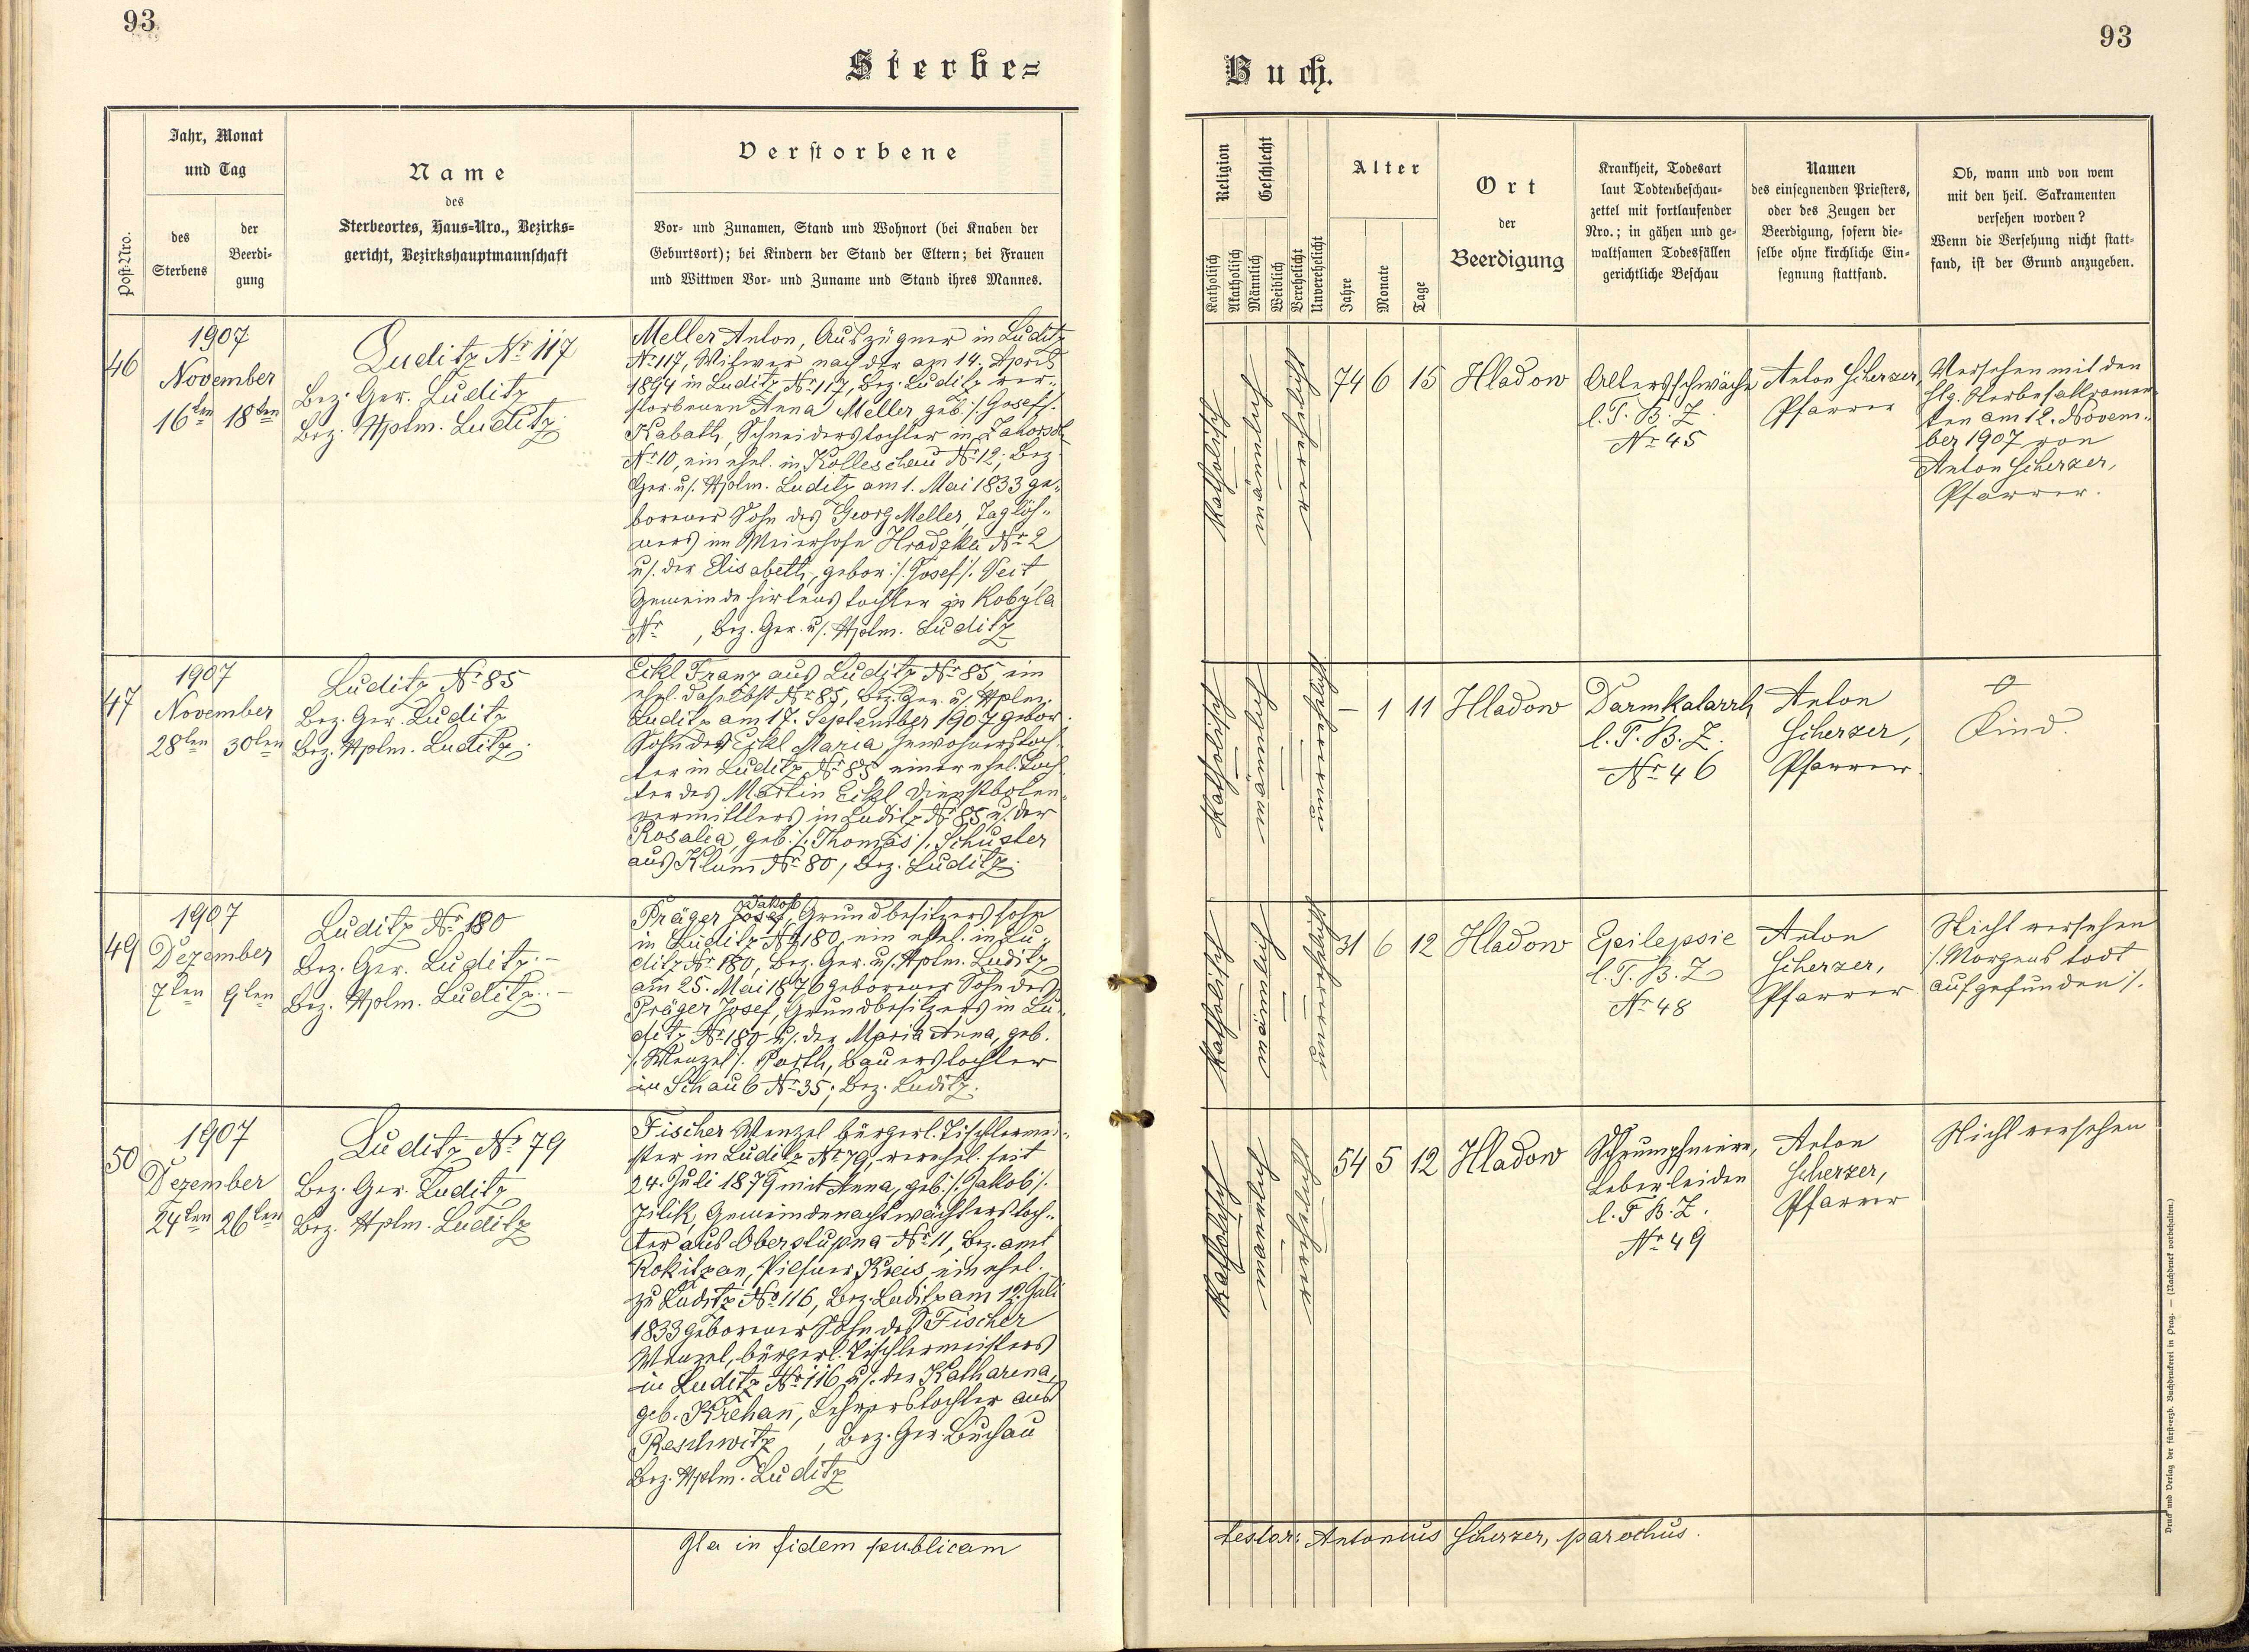 93
93
Sterbe=
Buch.
Post-Nro.
Jahr, Monat
und Tag
des
Sterbens
der
Beerdi-
gung
Name
des
Sterbeortes, Haus-Nro., Bezirks-
gericht, Bezirkshauptmannschaft
Verstorbene
Vor- und Zunamen, Stand und Wohnort (bei Knaben der
Geburtsort); bei Kindern der Stand der Eltern; bei Frauen
und Wittwen Vor- und Zuname und Stand ihres Mannes.
Religion
Katholisch
Akatholisch
Geschlecht
Männlich
Weiblich
Verehelicht
Unverehelicht
Alter
Jahre
Monate
Tage
Ort
der
Beerdigung
Krankheit, Todesart
laut Todtenbeschau-
zettel mit fortlaufender
Nro.; in gähen und ge-
waltsamen Todesfällen
gerichtliche Beschau
Namen
des einsegnenden Priesters,
oder des Zeugen der
Beerdigung, sofern die-
selbe ohne kirchliche Ein-
segnung stattfand.
Ob, wann und von wem
mit den heil. Sakramenten
versehen worden?
Wenn die Versehung nicht statt-
fand, ist der Grund anzugeben.
46
1907
November
16ten 18ten
Luditz Nr 117
Bez. Ger. Luditz
Bez. Hptm. Luditz.
Meller Anton, Auszügner in Luditz
Nr 117, Witwer nach der am 14. April
1894 in Luditz Nr 117, Bez. Luditz ver-
storbenen Anna Meller, geb. /. Josef /.
Kabath, Schneiderstochter in
Nr 10, ein ehel. in Kolleschau Nr 12, Bez.
Ger. u/. Hptm. Luditz am 1. Mai 1833 ge-
borener Sohn des Georg Meller, Taglöh-
ners im Meierhofe Hradzka Nr 2
u/. der Elisabeth, gebor. /. Josef /. Veit,
Gemeindehirtenstochter in Kobyla
Nr , Bez. Ger. u/. Hptm. Luditz
katholisch
männlich
Witwer
74 6 15
Hladow
Altersschwäche
l. T. B. Z.
Nr 45
Anton Scherzer,
Pfarrer
Versehen mit den
hlg. Sterbesakramen-
ten am 12. Novem-
ber 1907 von
Anton Scherzer,
Pfarrer.
47
1907
November
28ten 30ten
Luditz Nr 85
Bez. Ger. Luditz
Bez. Hptm. Luditz.
Eckl Franz aus Luditz Nr 85, ein
ehel. daselbst Nr 85, Bez. Ger. u/. Hptm.
Luditz am 17. September 1907 gebor.
Sohn der Eckl Maria, Inwohnerstoch-
ter in Luditz Nr 85, einer ehel. Toch-
ter des Martin Eckl, Dienstboten-
vermittlers in Luditz Nr 85 u/. der
Rosalia, geb. /. Thomas /. Schuster
aus Klum Nr 80, Bez. Luditz.
katholisch
männlich
unverehelicht
– 1 11
Hladow
Darmkatarrh
l. T. B. Z.
Nr 46
Anton
Scherzer,
Pfarrer.
Kind.
49
1907
Dezember
7ten 9ten
Luditz Nr 180
Bez. Ger. Luditz. –
Bez. Hptm. Luditz. –
Jakob
Präger Josef, Grundbesitzerssohn
in Luditz Nr 180, ein ehel. in Lu-
ditz Nr 180, Bez. Ger. u/. Hptm. Luditz
am 25. Mai 1876 geborener Sohn des
Präger Josef, Grundbesitzers in Lu-
ditz Nr 180 u/. der Maria Anna, geb.
/. Wenzel /. Porth, Bauerstochter
in Schaub Nr 35, Bez. Luditz.
katholisch
männlich
unverehelicht
31 6 12
Hladow
Epilepsie
l. T. B. Z
Nr 48
Anton
Scherzer,
Pfarrer
Nicht versehen
/. Morgens todt
aufgefunden /.
50
1907
Dezember
24ten 26ten
Luditz Nr 79
Bez. Ger. Luditz
Bez. Hptm. Luditz
Fischer Wenzel bürgerl. Tischlermei-
ster in Luditz Nr 79, verehel. seit
24. Juli 1879 mit Anna, geb. /. Jakob /.
Jilik, Gemeindenachtwächterstoch-
ter aus Oberstupna Nr 11, Bez. amt
Rokitzan, Pilsner Kreis, ein ehel.
zu Luditz Nr 116, Bez. Luditz am 12. Juli
1833 geborener Sohn des Fischer
Wenzel, bürgerl. Tischlermeisters
in Luditz Nr 116 u/. der Katharina,
geb. Krehan, Lehrerstochter aus
Reschwitz , Bez. Ger. Buchau
Bez. Hptm. Luditz
katholisch
männlich
verehelicht
54 5 12
Hladow
Schrumpfniere,
Leberleiden
l. T. B. Z.
Nr 49
Anton
Scherzer,
Pfarrer
Nicht versehen
Ita in fidem publicam
testor: Antonius Scherzer, parochus.
Druck und Verlag der fürsterzb. Buchdruckerei in Prag. — (Nachdruck vorbehalten.)